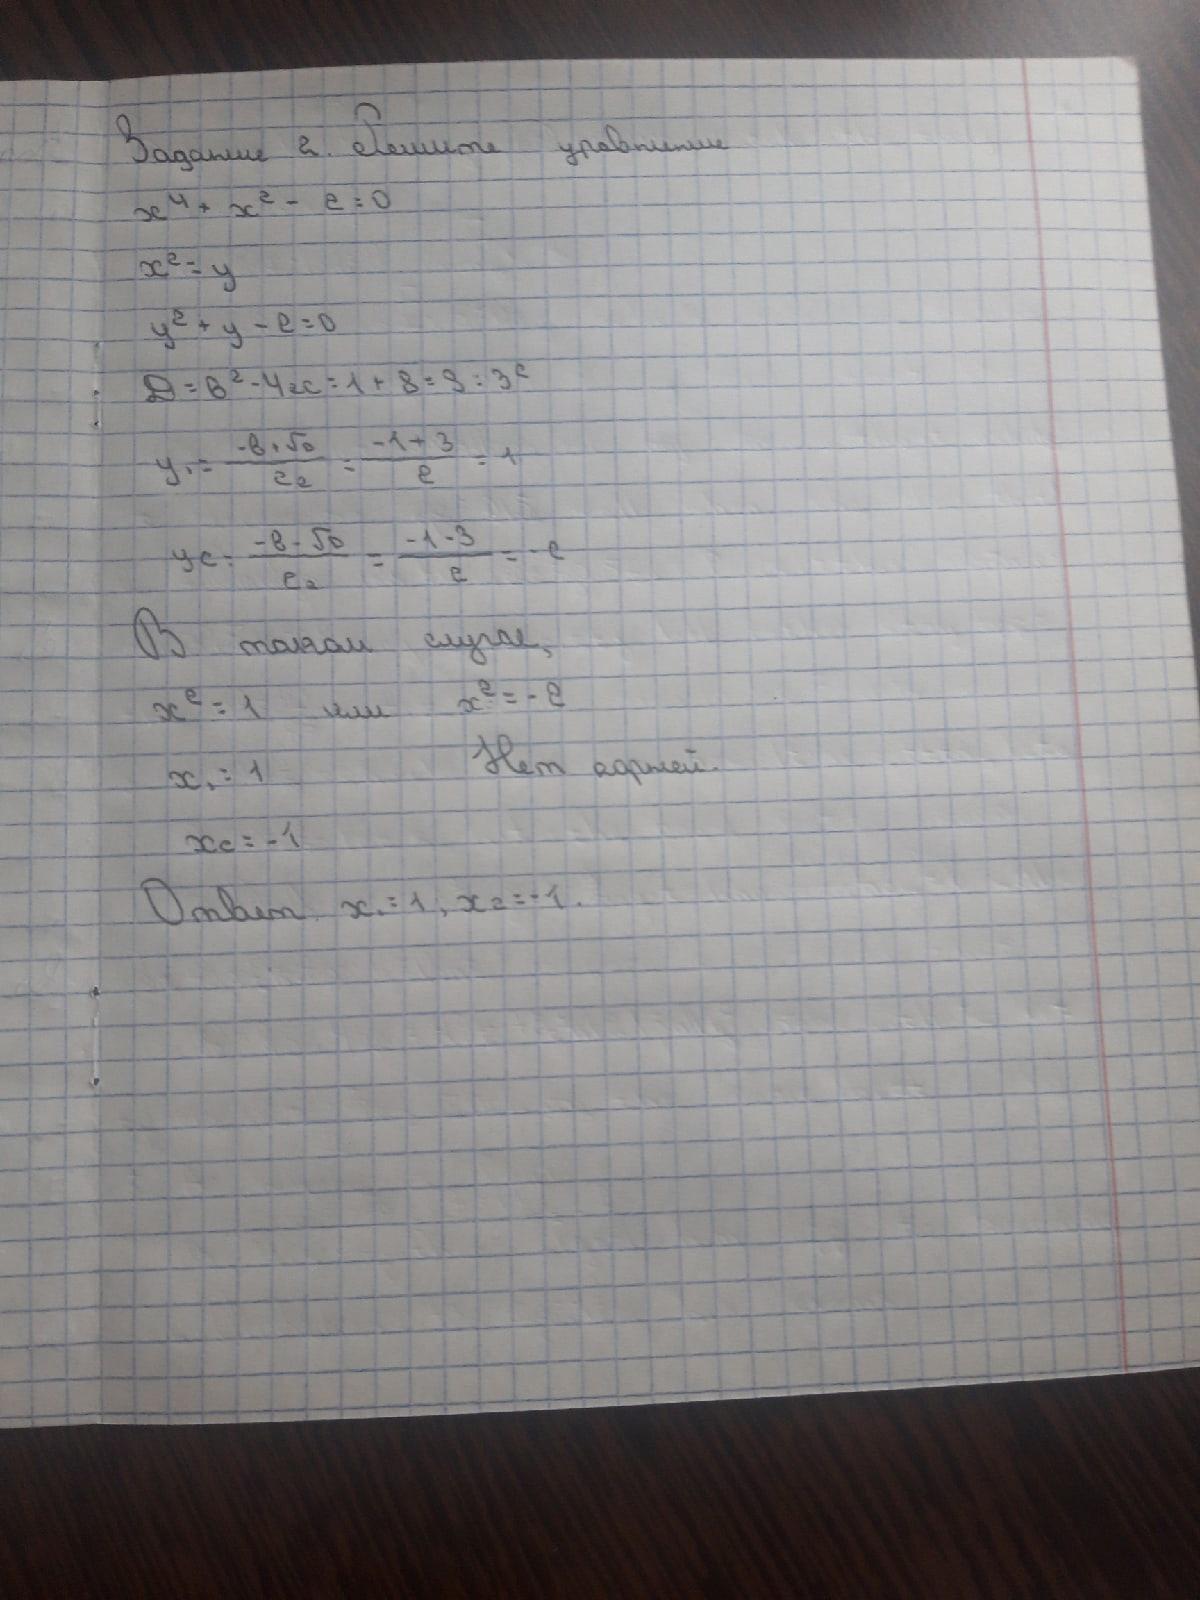 Задание 2. Решите уравнение
x⁴ + x² - 2 = 0
x² = y
y² + y - 2 = 0
D = b² - 4ac = 1 + 8 = 9 = 3²
y₁ = (-b+√D)/2a = (-1+3)/2 = 1
y₂ = (-b-√D)/2a = (-1-3)/2 = -2
В таком случае,
x² = 1 или x² = -2
x₁ = 1 Нет корней.
x₂ = -1
Ответ: x₁ = 1, x₂ = -1.